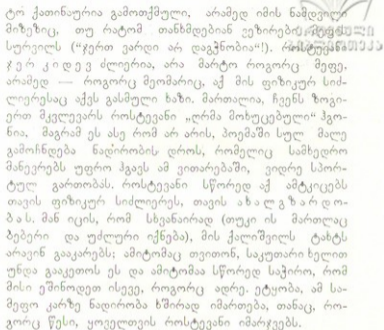 ტო ქათინაურია გამოთქმული, არამედ იმის ნამდვილი
მიზეზიც, თუ რატომ თანხმდებიან ვეზირები მეფის
სურვილს ("ჯერთ ვარდი არ დაგჭნობია"!). როსტევან
ჯერ კიდევ ძლიერია, არა მარტო როგორც მეფე,
არამედ — როგორც მეომარიც, აქ მის ფიზიკურ სიძ-
ლიერესაც აქვს გასმული ხაზი. მართალია, ჩვენს ზოგი-
ერთ მკვლევარს როსტევანი „ღრმა მოხუცებული" ჰგო-
ნია, მაგრამ ეს ასე რომ არ არის, პოემაში სულ მალე
გამოჩნდება ნადირობის დროს, რომელიც სამხედრო
მანევრებს უფრო ჰგავს ამ ვითარებაში, ვიდრე სპორ-
ტულ გართობას. როსტევანი სწორედ აქ ამტკიცებს
თავის ფიზიკურ სიძლიერეს, თავის ახალგზარდო-
ბას, მან იცის, რომ სხვანაირად (თუკი ის მართლაც
ბებერი და უძლური იქნება), მის ქალიშვილს ტახტს
არავინ გააკარებს; ამიტომაც თვითონ, საკუთარი ხელით
უნდა გააკეთოს ეს და ამიტომაა სწორედ საჭირო, რომ
მისი ეშინოდეთ ისევე, როგორც ადრე. ეტყობა, ამ სა-
მეფო კარზე ნადირობა ხშირად იმართება, თანაც, რო-
გორც წესი, ყოველთვის როსტევანი იმარჯვებს.